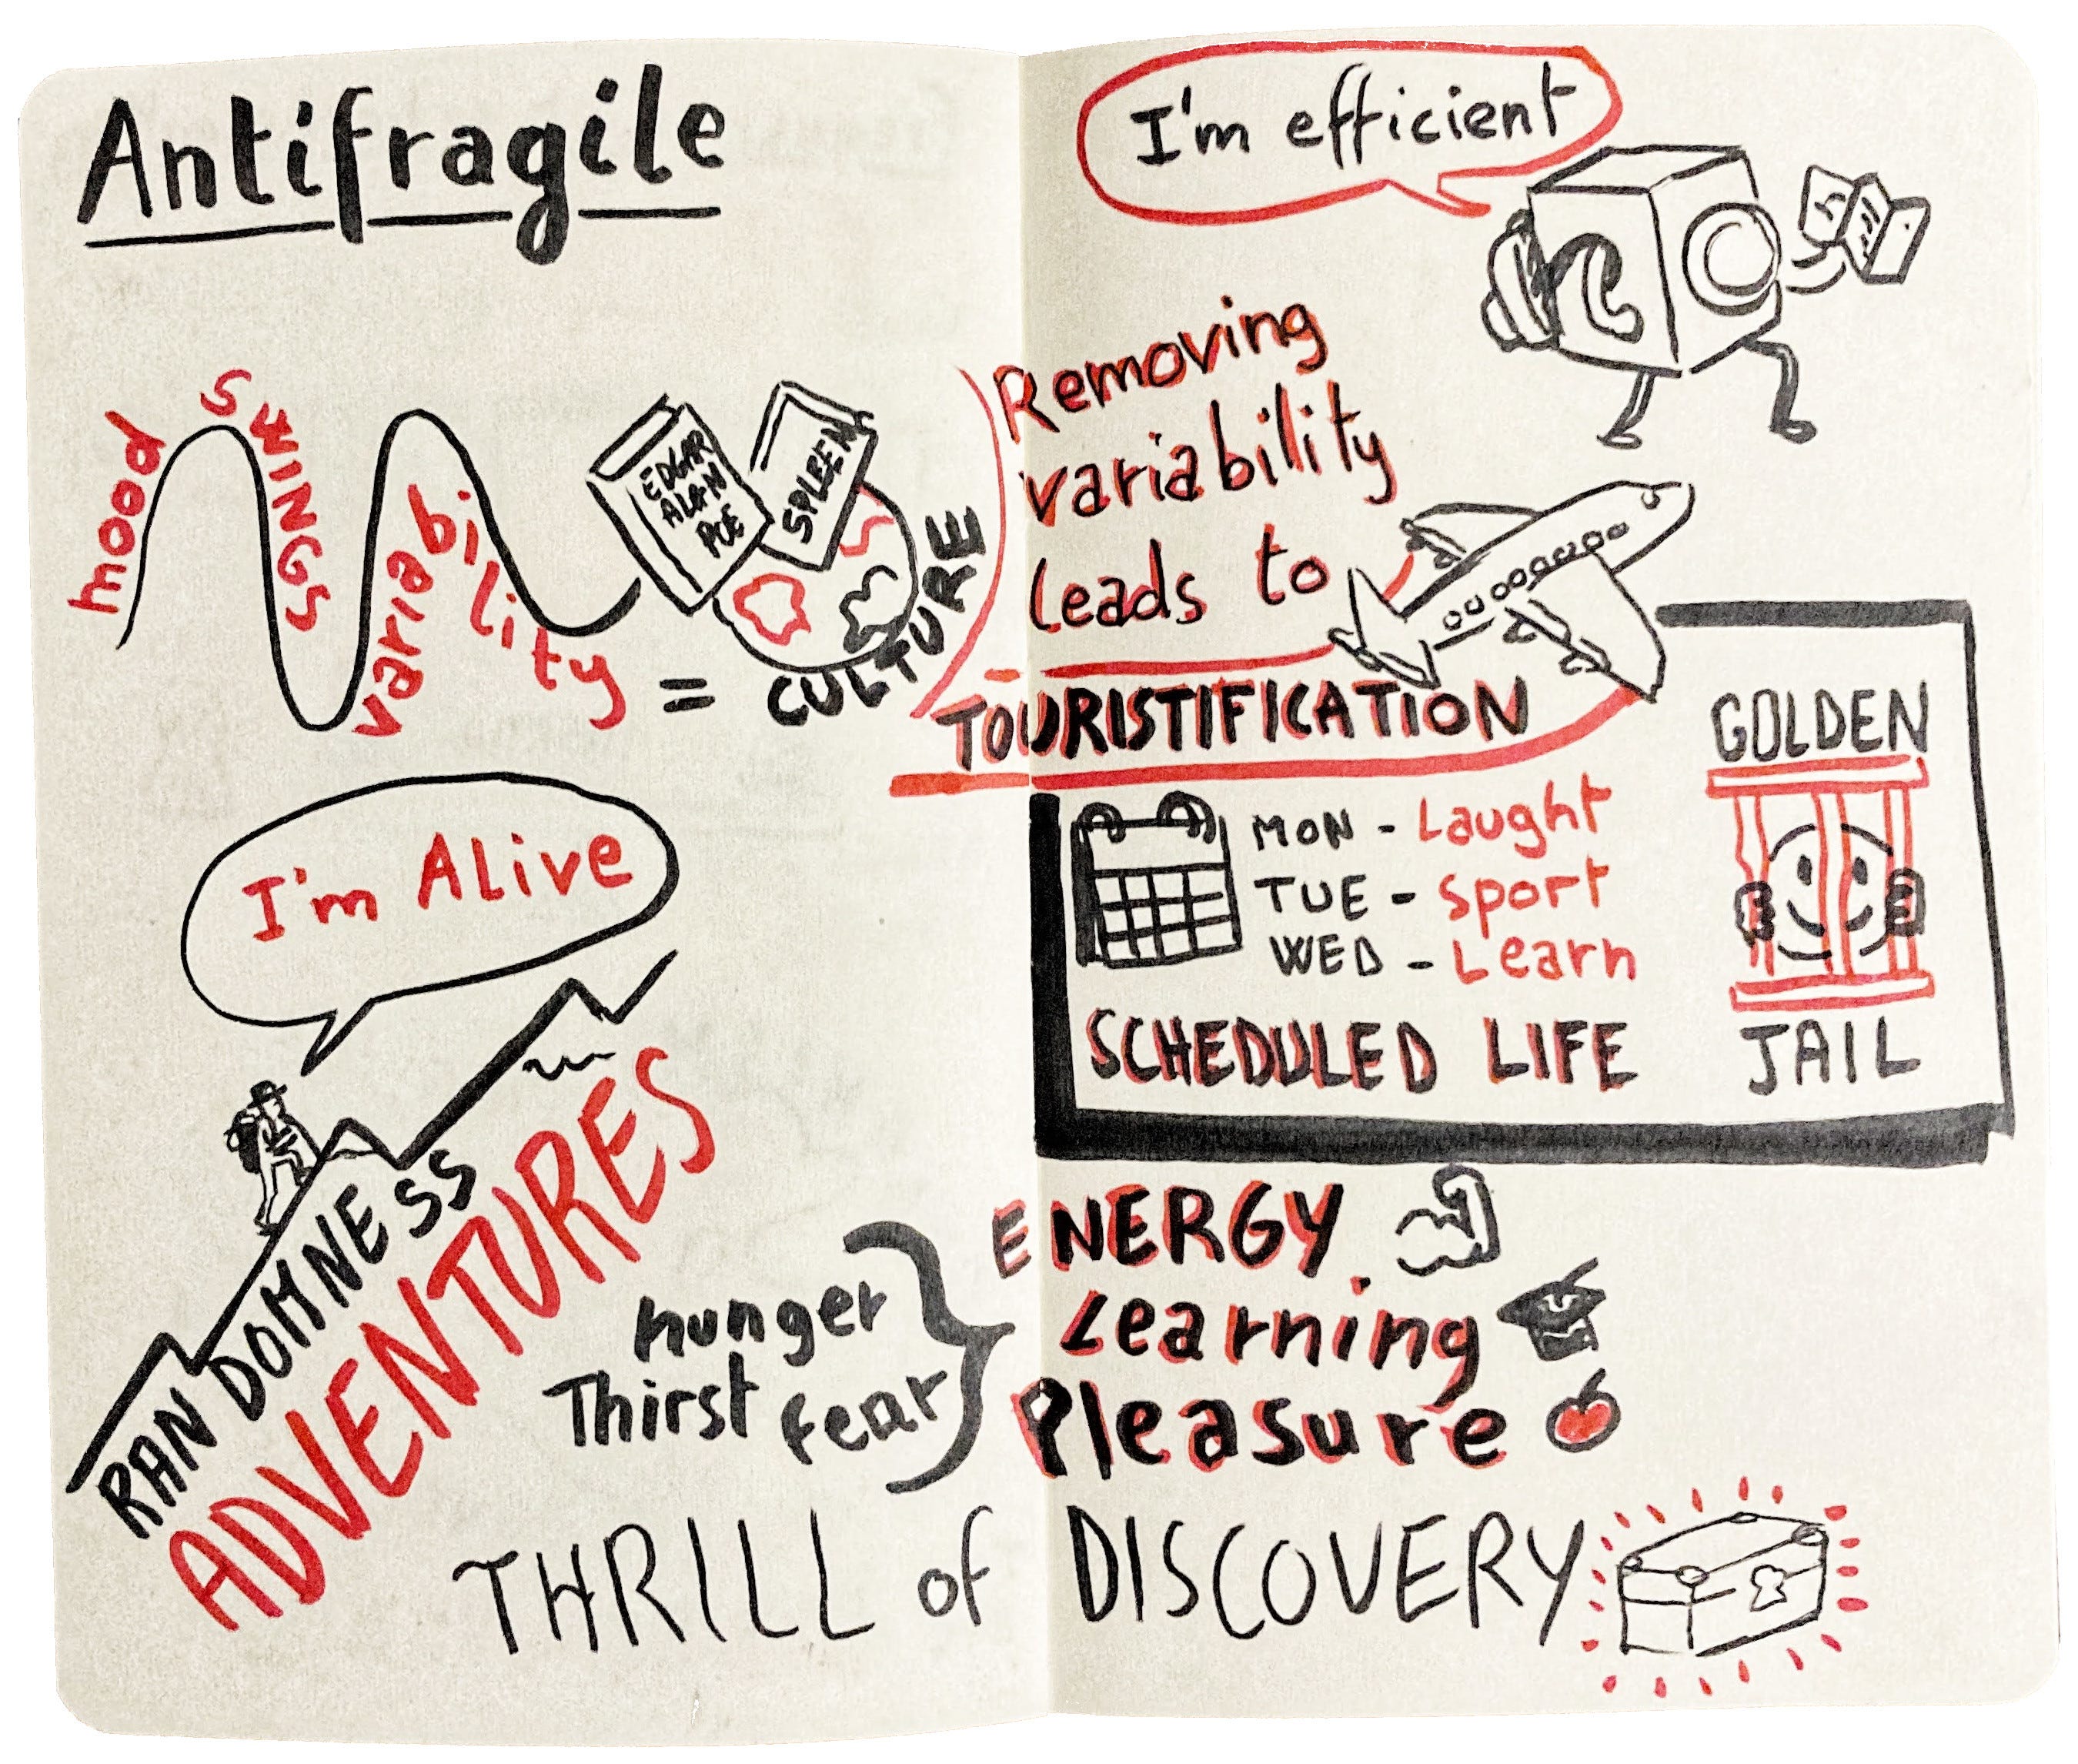 Antifragile
mood
SWINGS
variability
EDGAR
ALAN
POE
SPLEEN
= CULTURE
I'm ALive
RANDOMNESS
ADVENTURES
I'm efficient
Removing
variability
Leads to
TOURISTIFICATION
MON - Laught
TUE - Sport
WED - Learn
SCHEDULED LIFE
GOLDEN
JAIL
hunger
Thirst fear
ENERGY
Learning
Pleasure
THRILL of DISCOVERY